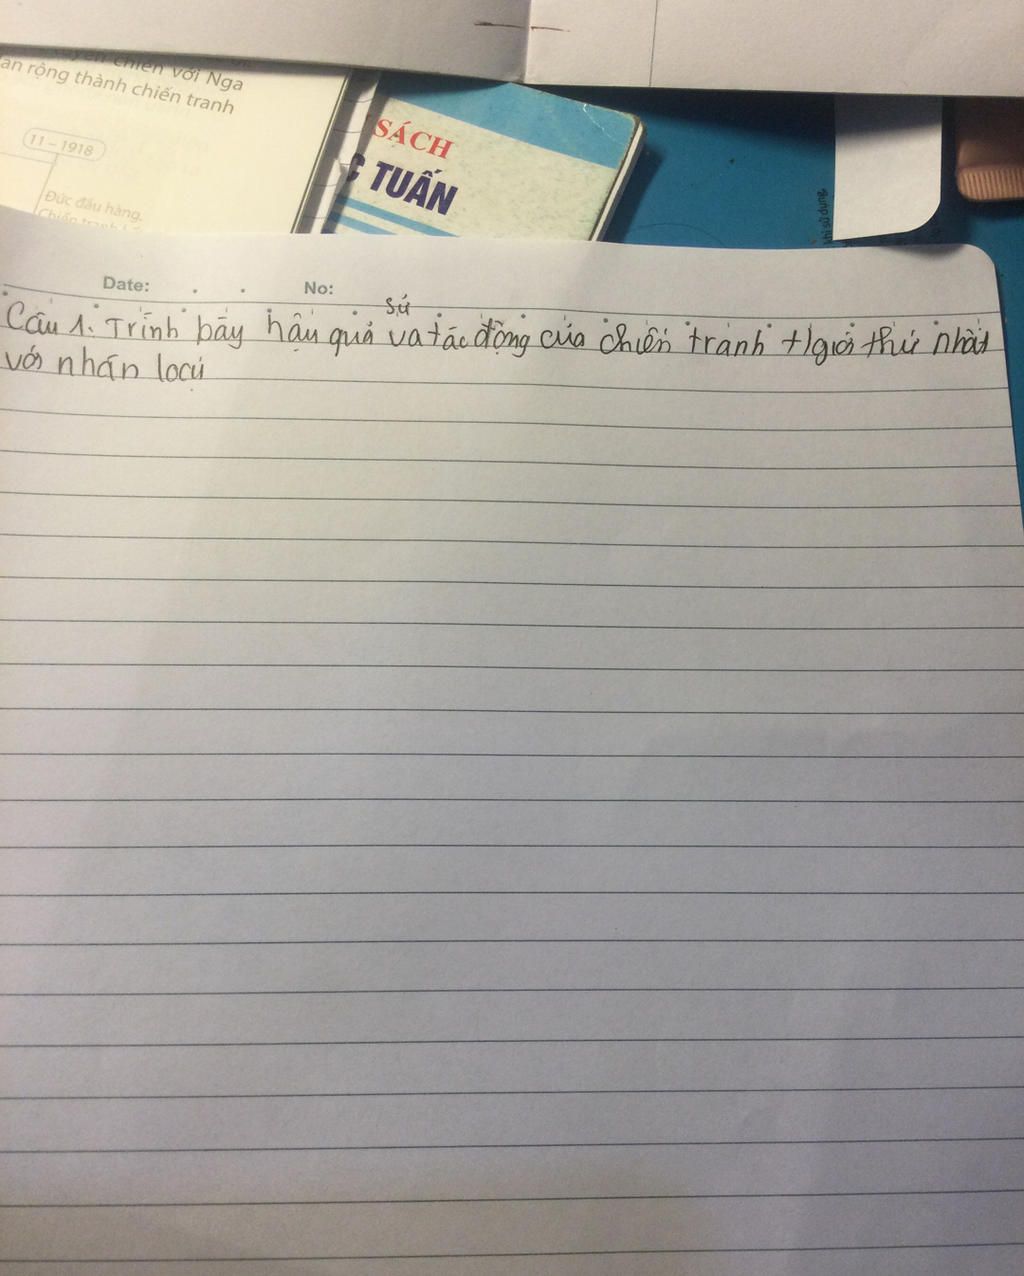 chiến với Nga
an rộng thành chiến tranh
11 – 1918
Đức đầu hàng.
SÁCH
C TUẤN
Date: . . No:
sự
Câu 1. Trình bày hậu quả và tác động của chiến tranh t/giới thứ nhất
với nhân loại